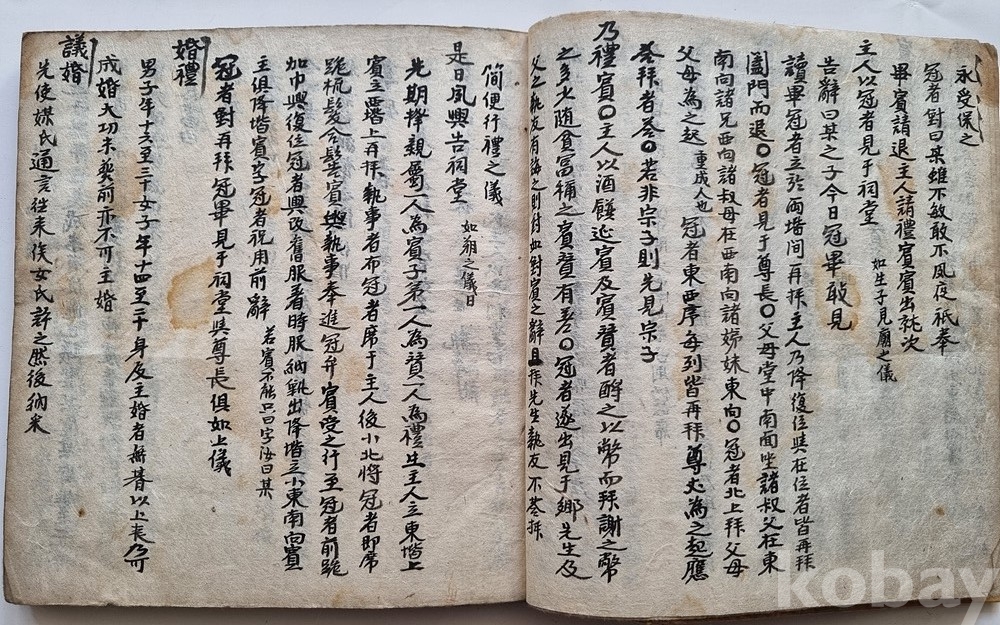 永受保之
冠者對曰某雖不敏敢不夙夜祗奉
畢賓請退主人請禮賓賓出就次
主人以冠者見于祠堂 如生子見廟之儀
告辭曰某之子今日冠畢敢見
讀畢冠者立於兩堦間再拜主人乃降復位與在位者皆再拜
闔門而退〇冠者見于尊長〇父母堂中南面坐諸叔父在東
南向諸兄西向諸叔母在西南向諸姊妹東向〇冠者北上拜父母
父母為之起 重成人也 冠者東西序每列皆再拜尊丈為之起應
答拜者答〇若非宗子則先見宗子
乃禮賓〇主人以酒饌延賓及賓賛者酧之以幣而拜謝之幣
之多少随貧富稱之賓賛有差〇冠者遂出見于鄉先生及
父之執友有誨之則對如對賓之辭且拜先生執友不答拜
簡便行禮之儀
是日夙興告祠堂 如朔之儀曰
先期擇親屬一人為賓子弟一人為賛一人為禮生主人立東堦上
賓立西堦上再拜執事者布冠者席于主人後小北將冠者即席
跪梳髮合髻賓與執事奉進冠弁賓受之行至冠者前跪
加巾興復位冠者興改舊服着時服納靴出降堦立小東南向賓
主俱降堦賓字冠者祝用前辭 若賓不能只曰字汝曰某
冠者對再拜冠畢見于祠堂與尊長俱如上儀
婚禮
男子年十六至三十女子年十四至二十身及主婚者無朞以上丧乃可
成婚大功未葬前亦不可主婚
議婚
先使媒氏通言往来俟女氏許之然後納采
kobay